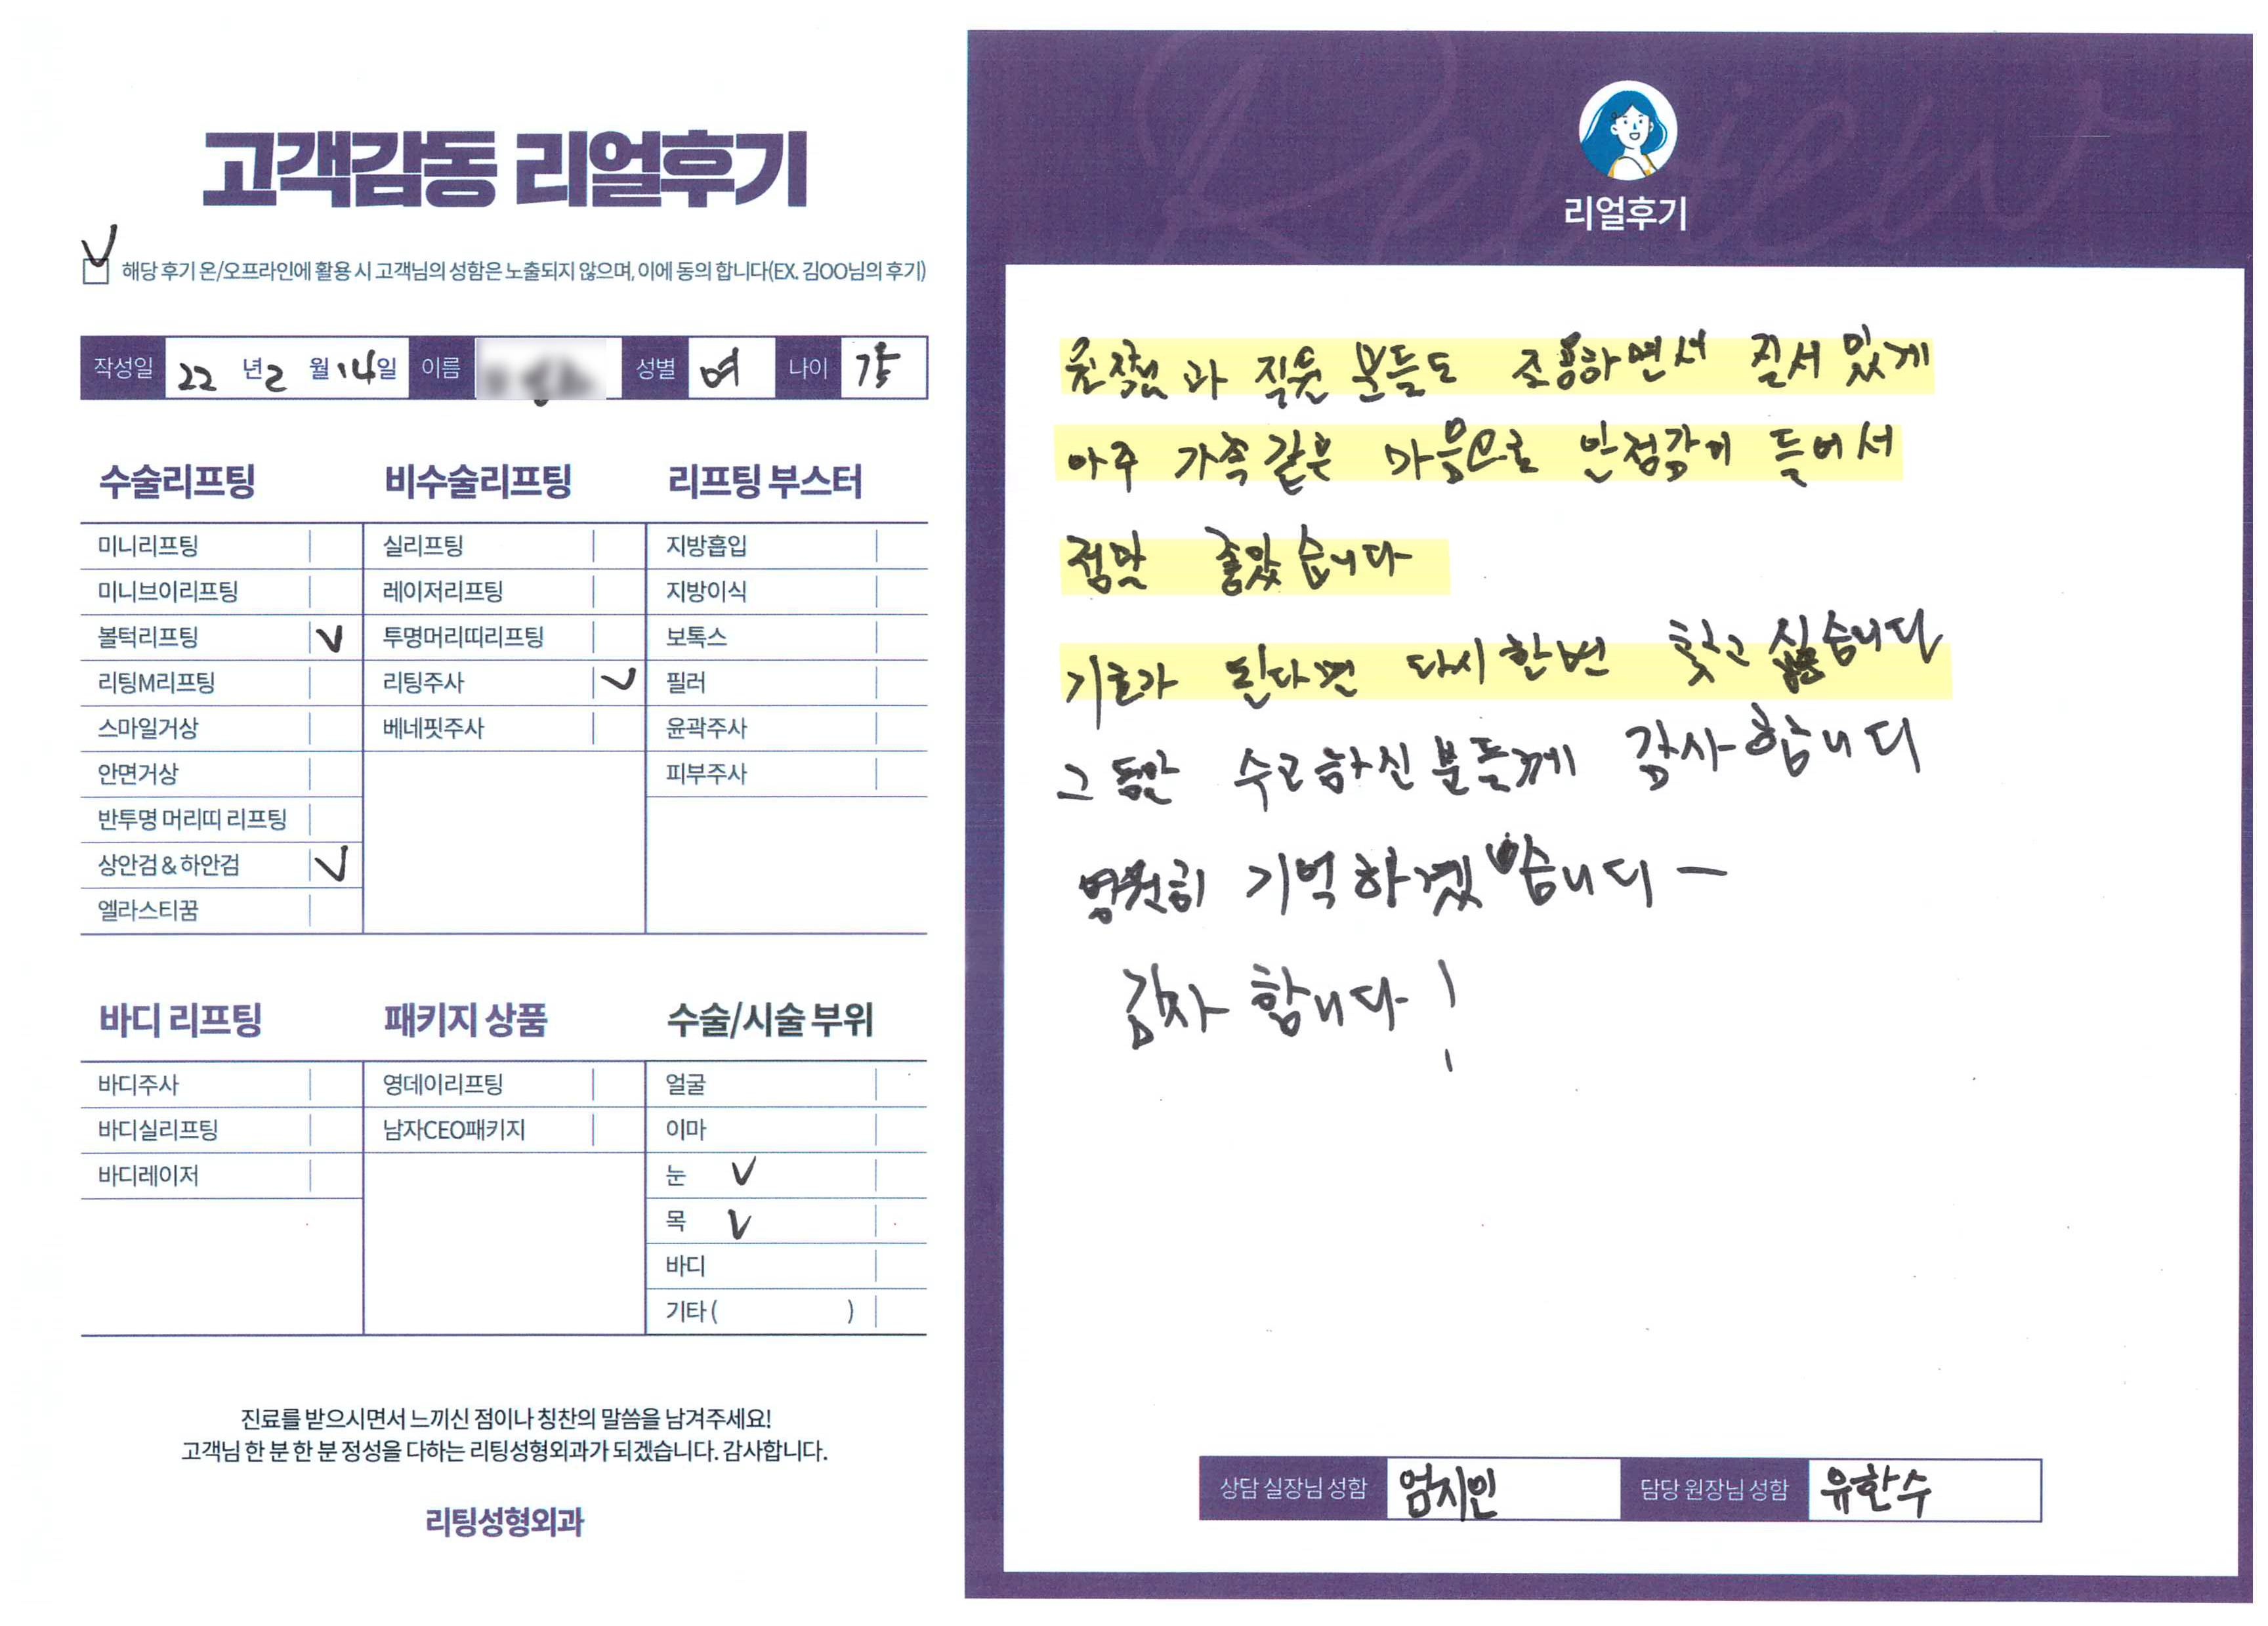 고객감동 리얼후기
해당 후기 온/오프라인에 활용 시 고객님의 성함은 노출되지 않으며, 이에 동의 합니다(EX. 김OO님의 후기)
작성일 22 년 2 월 14 일 이름 성별 여 나이
수술리프팅
미니리프팅
미니브이리프팅
볼턱리프팅 V
리팅M리프팅
스마일거상
안면거상
반투명 머리띠 리프팅
상안검 & 하안검 V
엘라스티꿈
비수술리프팅
실리프팅
레이저리프팅
투명머리띠리프팅
리팅주사 V
베네핏주사
리프팅 부스터
지방흡입
지방이식
보톡스
필러
윤곽주사
피부주사
바디 리프팅
바디주사
바디실리프팅
바디레이저
패키지 상품
영데이리프팅
남자CEO패키지
수술/시술 부위
얼굴
이마
눈 V
목 V
바디
기타 ( )
진료를 받으시면서 느끼신 점이나 칭찬의 말씀을 남겨주세요!
고객님 한 분 한 분 정성을 다하는 리팅성형외과가 되겠습니다. 감사합니다.
리팅성형외과
Review
리얼후기
원장님과 직원 분들도 조용하면서 질서 있게
아주 가족같은 마음으로 안정감이 들어서
정말 좋았습니다
기회가 된다면 다시한번 찾고 싶습니다
그 동안 수고하신 분들께 감사합니다
영원히 기억하겠습니다 –
감사 합니다 !
상담 실장님 성함 엄지인 담당 원장님 성함 유한수